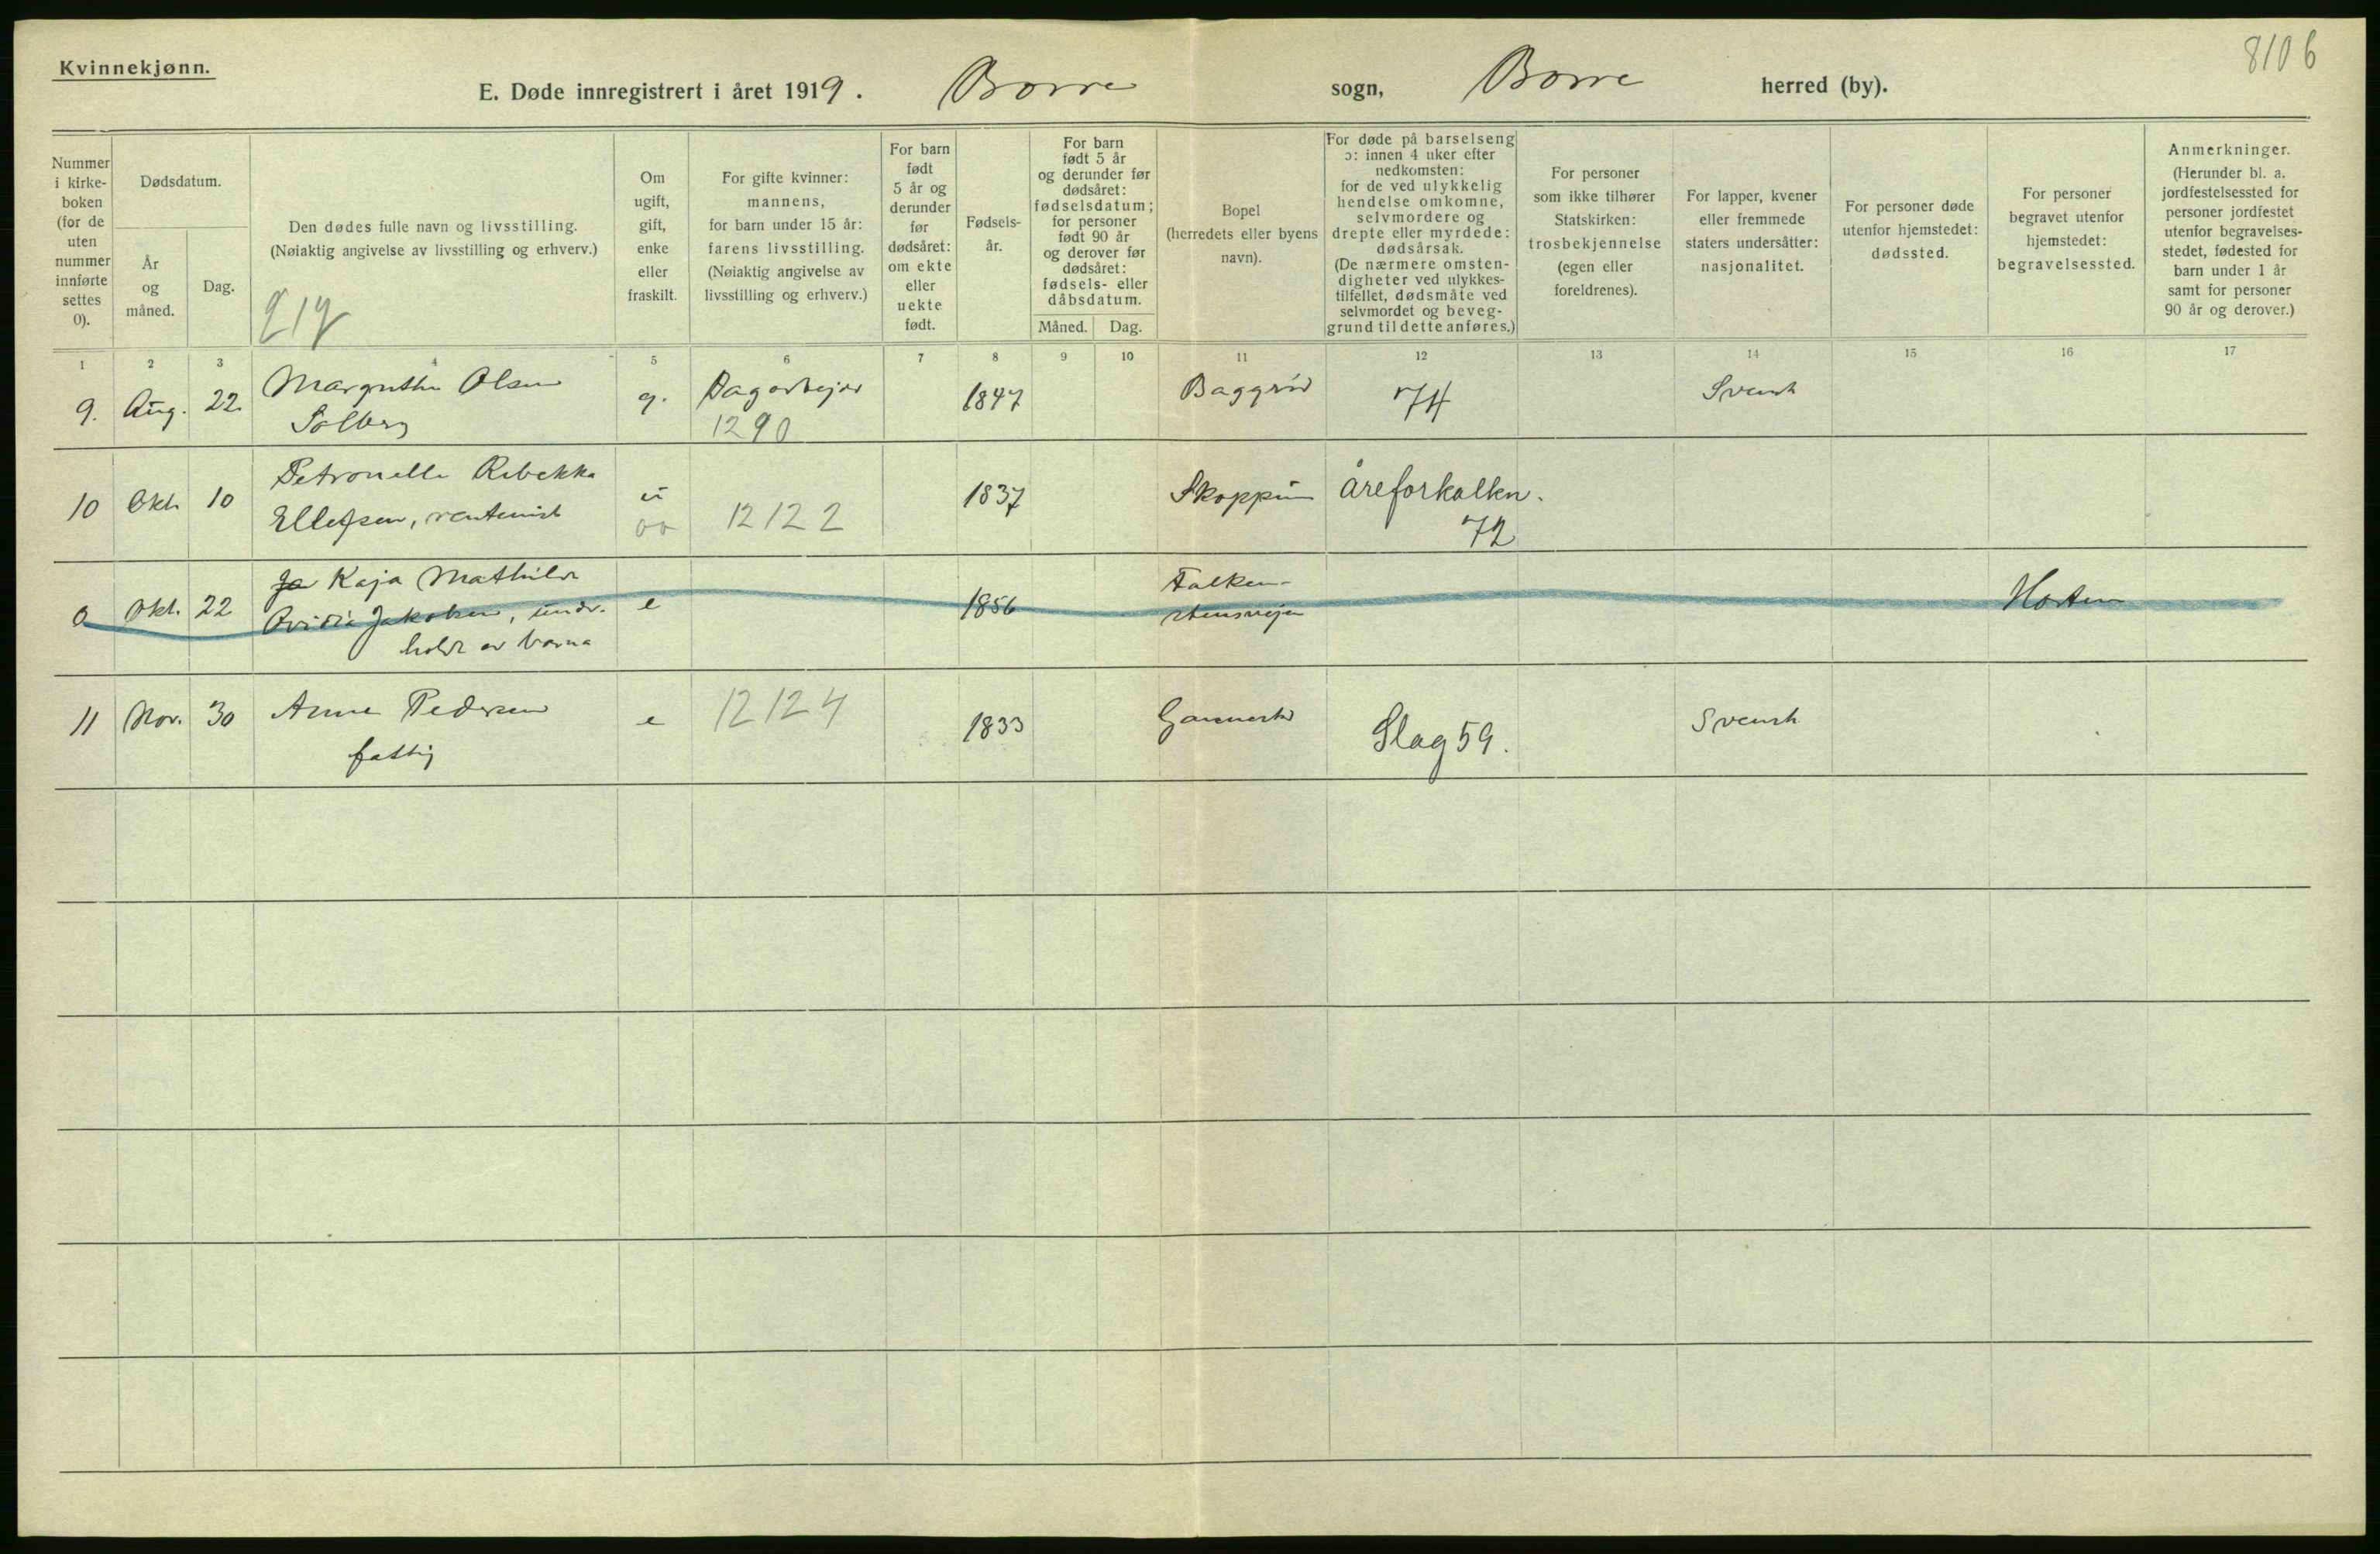 8106
Kvinnekjønn.
E. Døde innregistrert i året 1919. Borre sogn, Borre herred (by).
Nummer i kirke- boken (for de uten nummer innførte settes 0).
Dødsdatum.
År og måned.
Dag.
Den dødes fulle navn og livsstilling.
(Nøiaktig angivelse av livsstilling og erhverv.)
Om ugift, gift, enke eller fraskilt.
For gifte kvinner: mannens, for barn under 15 år: farens livsstilling. (Nøiaktig angivelse av livsstilling og erhverv.)
For barn født 5 år og derunder før dødsåret: om ekte eller uekte født.
Fødsels- år.
For barn født 5 år og derunder før dødsåret: fødselsdatum; for personer født 90 år og derover før dødsåret: fødsels- eller dåbsdatum.
Måned. Dag.
Bopel (herredets eller byens navn).
For døde på barselseng ɔ: innen 4 uker efter nedkomsten: for de ved ulykkelig hendelse omkomne, selvmordere og drepte eller myrdede: dødsårsak. (De nærmere omsten- digheter ved ulykkes- tilfellet, dødsmåte ved selvmordet og beveg- grund til dette anføres.)
For personer som ikke tilhører Statskirken: trosbekjennelse (egen eller foreldrenes).
For lapper, kvener eller fremmede staters undersåtter: nasjonalitet.
For personer døde utenfor hjemstedet: dødssted.
For personer begravet utenfor hjemstedet: begravelsessted.
Anmerkninger. (Herunder bl. a. jordfestelsessted for personer jordfestet utenfor begravelses- stedet, fødested for barn under 1 år samt for personer 90 år og derover.)
1 2 3 4 5 6 7 8 9 10 11 12 13 14 15 16 17
9. Aug. 22. Margrethe Olsen g. Dagarbejder 1847 Baggrød 74 Svensk
Solberg 1290
10 Okt. 10 Petronelle Rebekka u 1837 Skoppum Åreforkalkn.
Ellefsen, rentenist 00 12122 72
0 Okt. 22 Ja Kaja Mathilde e 1856 Falken- Horten
Jakobsen, under- stensvejen
holdt av barna
11 Nov. 30 Anne Pedersen e 12124 1833 Slag 59. Svensk
fattig